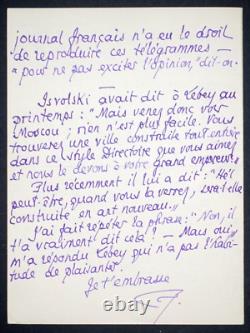 journal français n'a eu le droit
de reproduire ces télégrammes —
"pour ne pas exciter l'opinion," dit-on.
Isvolski avait dit à Lebey au
printemps : "Mais venez donc voir
Moscou ; rien n'est plus facile. Vous
trouverez une ville construite tout entière
dans ce style Directoire que vous aimez
et nous le devons à votre grand empereur."
Plus récemment il lui a dit : "Hé !
peut-être, quand vous la verrez, sera-t-elle
construite en art nouveau."
J'ai fait répéter la phrase : "Non, il
t'a vraiment dit cela ? — Mais oui,"
m'a répondu Lebey qui n'a pas l'habi-
tude de plaisanter.
Je t'embrasse